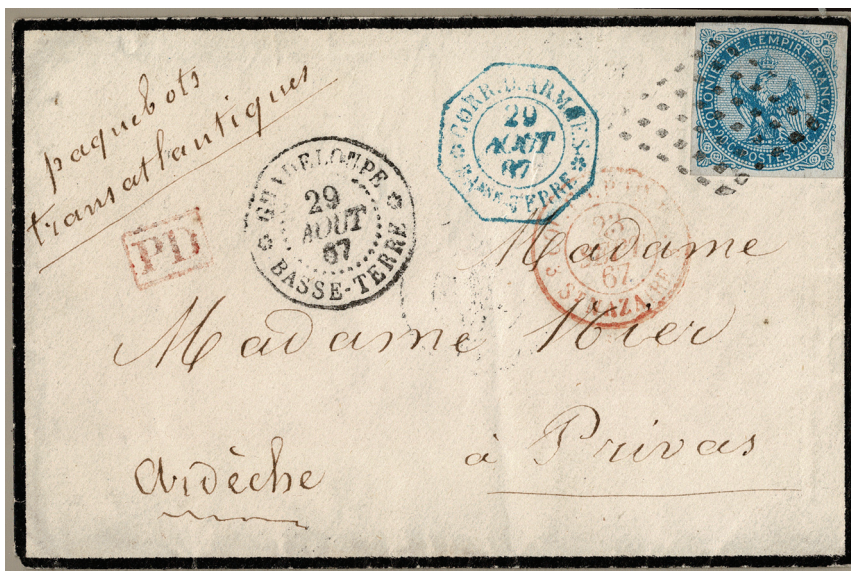 paquebots
transatlantiques
PD
GUADELOUPE
29
AOUT
67
BASSE-TERRE
CORR. D. ARMÉES
29
AOUT
67
BASSE-TERRE
COLONIES DE L'EMPIRE FRANÇAIS
20c. POSTES 20c.
67
3 ST NAZAIRE
Madame
Madame Hier
à Privas
Ardèche